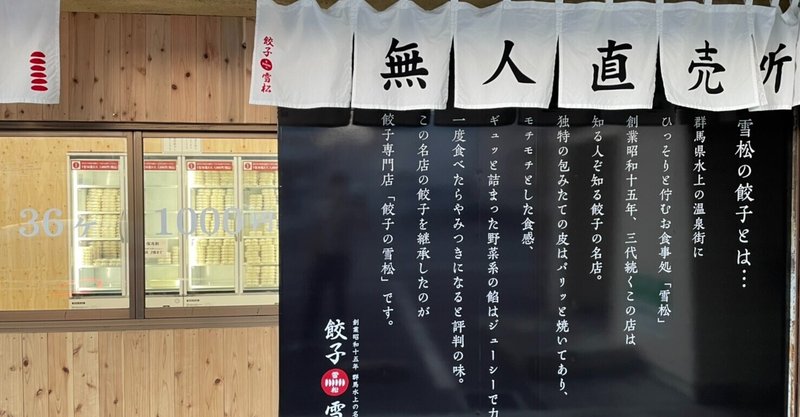 餃子の雪松
無人直売所
雪松の餃子とは…
群馬県水上の温泉街に
ひっそりと佇むお食事処「雪松」
創業昭和十五年、三代続くこの店は
知る人ぞ知る餃子の名店。
独特の包みたての皮はパリッと焼いてあり、
モチモチとした食感、
ギュッと詰まった野菜系の餡はジューシーで力
一度食べたらやみつきになると評判の味。
この名店の餃子を継承したのが
餃子専門店「餃子の雪松」です。
創業昭和十五年 群馬水上の名
餃子
雪松
雪
36ヶ
1000円